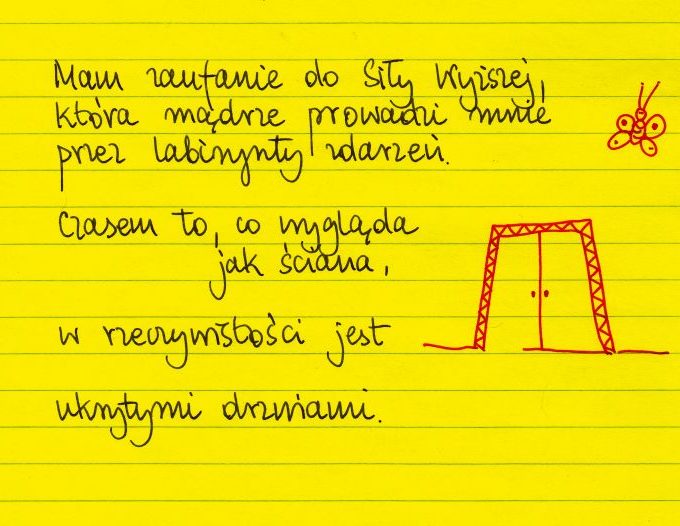 Mam zaufanie do Siły Wyższej,
która mądrze prowadzi mnie
przez labirynty zdarzeń.
Czasem to, co wygląda
jak ściana,
w rzeczywistości jest
ukrytymi drzwiami.